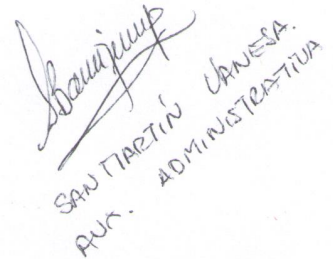 SAN MARTIN VANESA.
AUX. ADMINISTRATIVA